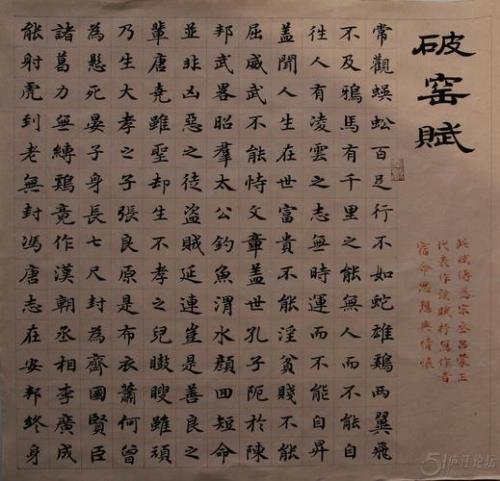 破窰賦
常觀蜈蚣百足行不如蛇雄鷄兩翼飛
不及鴉馬有千里之能無人而不能自
徃人有凌雲之志無時運而不能自昇
蓋聞人生在世富貴不能淫貧賤不能
屈威武不能恃文章蓋世孔子阨於陳
邦武畧昭羣太公釣魚渭水顔回短命
並非凶惡之徒盜賊延連豈是善良之
輩唐堯雖聖却生不孝之兒瞍雖頑
乃生大孝之子張良原是布衣蕭何曾
為懸死晏子身長七尺封為齊國賢臣
諸葛力無縛鷄竟作漢朝丞相李廣成
能射虎到老無封馮唐志在安邦終身
此賦傳為宋丞呂蒙正
代表作該賦抒作者
宿命思想與情懷